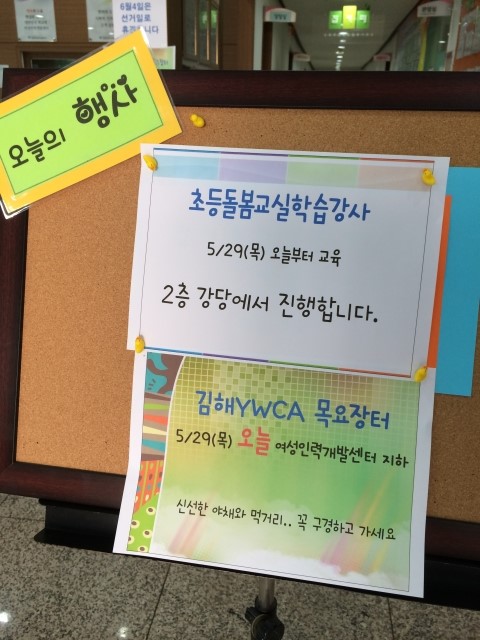 6월4일은
선거일로
오늘의 행사
초등돌봄교실학습강사
5/29(목) 오늘부터 교육
2층 강당에서 진행합니다.
김해YWCA 목요장터
5/29(목) 오늘 여성인력개발센터 지하
신선한 야채와 먹거리.. 꼭 구경하고 가세요